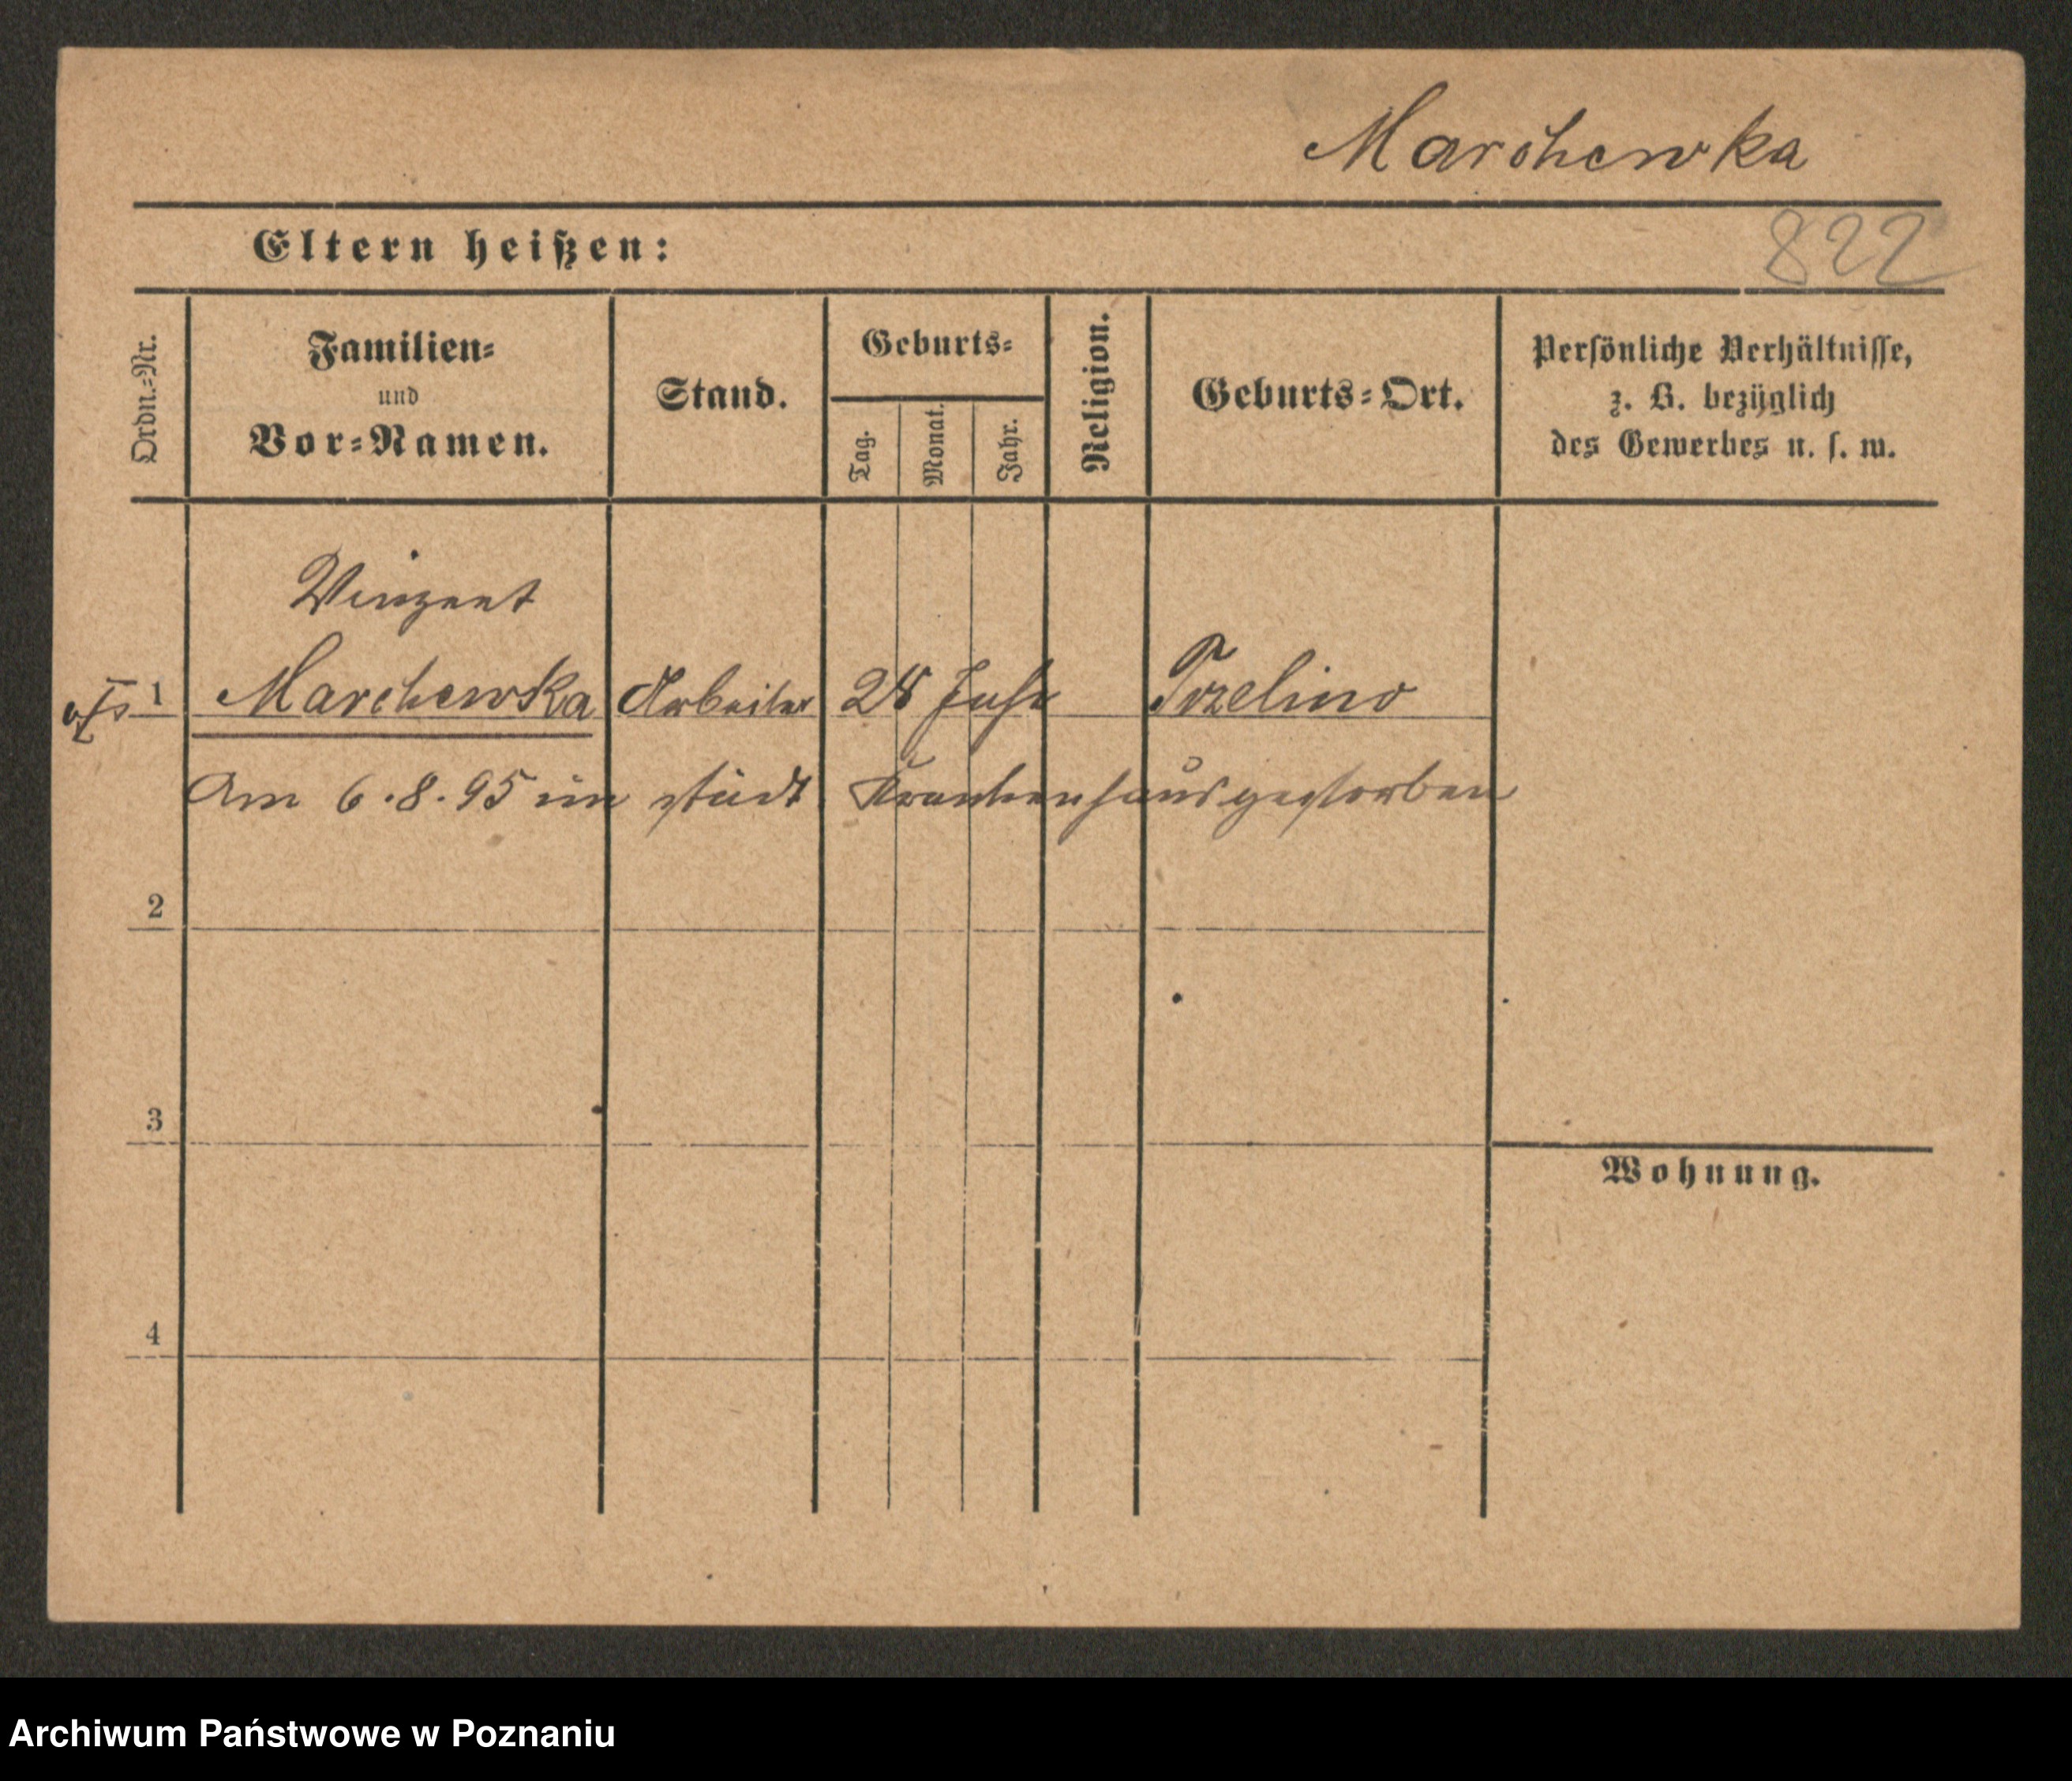 Marchewka
Eltern heißen:
822
Ordn.-Nr.
Familien-
und
Vor-Namen.
Stand.
Geburts-
Tag.
Monat.
Jahr.
Religion.
Geburts-Ort.
Persönliche Verhältnisse,
z. B. bezüglich
des Gewerbes u. s. w.
Vinzent
1 Marchewka Arbeiter 28 Jahr
Am 6.8.95 im städt Krankenhaus gestorben
2
3
Wohnung.
4
Archiwum Państwowe w Poznaniu